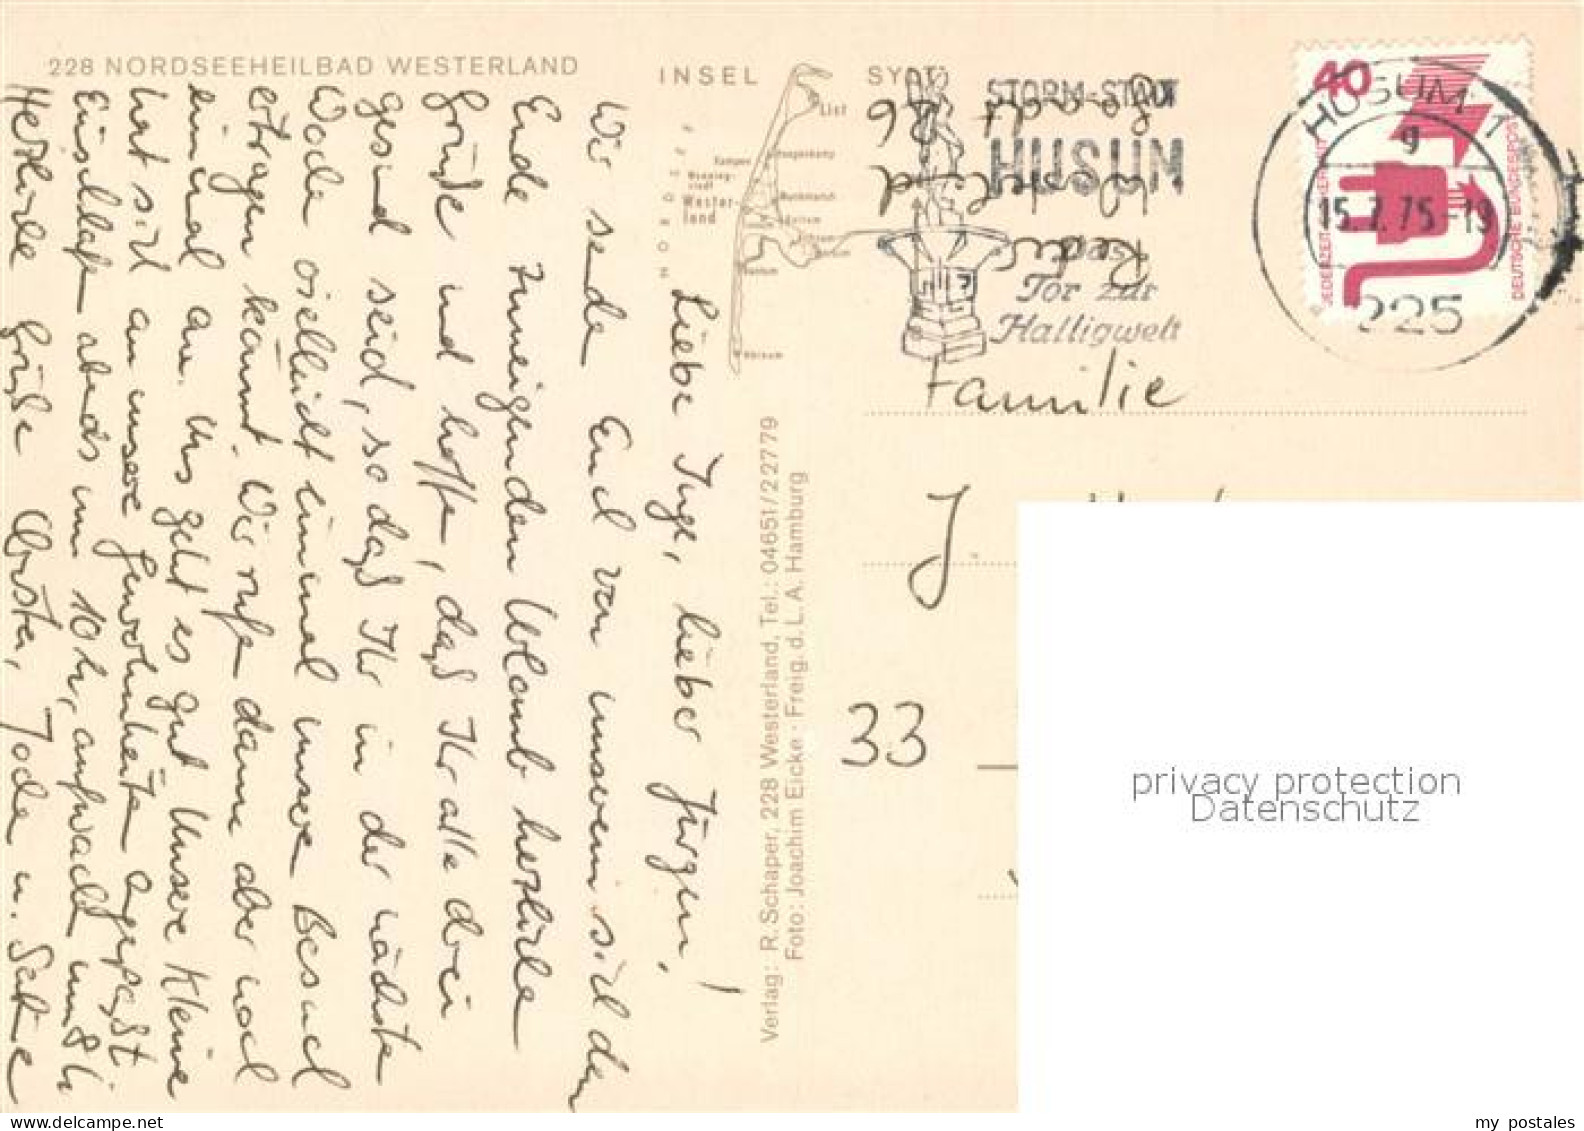 228 NORDSEEHEILBAD WESTERLAND
INSEL SYLT
List
Kampen
Westerland
Hörnum
NORDSEE
STORM-STADT
HUSUM
das
Tor zur
Halligwelt
40
JEDERZEIT SICHERHEIT
DEUTSCHE BUNDESPOST
HUSUM 1
g
15.7.75-19
225
Liebe Inge, lieber Jürgen!
Wir senden Euch von unserem sich dem
Ende zuneigenden Urlaub herzliche
Grüße und hoffen, daß Ihr alle drei
gesund seid, so daß Ihr in der nächsten
Woche vielleicht einmal unseren Besuch
ertragen könnt. Wir rufen dann aber noch
einmal an. Uns geht es gut. Unsere Kleine
hat sich an unsere Gewohnheiten angepaßt:
Einschlafen abends um 10 h, aufwachen um 8 h
Herzliche Grüße
Verlag: R. Schaper, 228 Westerland, Tel.: 04651/22779
Foto: Joachim Eicke · Freig. d. L. A. Hamburg
Familie
J
33
privacy protection
Datenschutz
my postales
www.delcampe.net